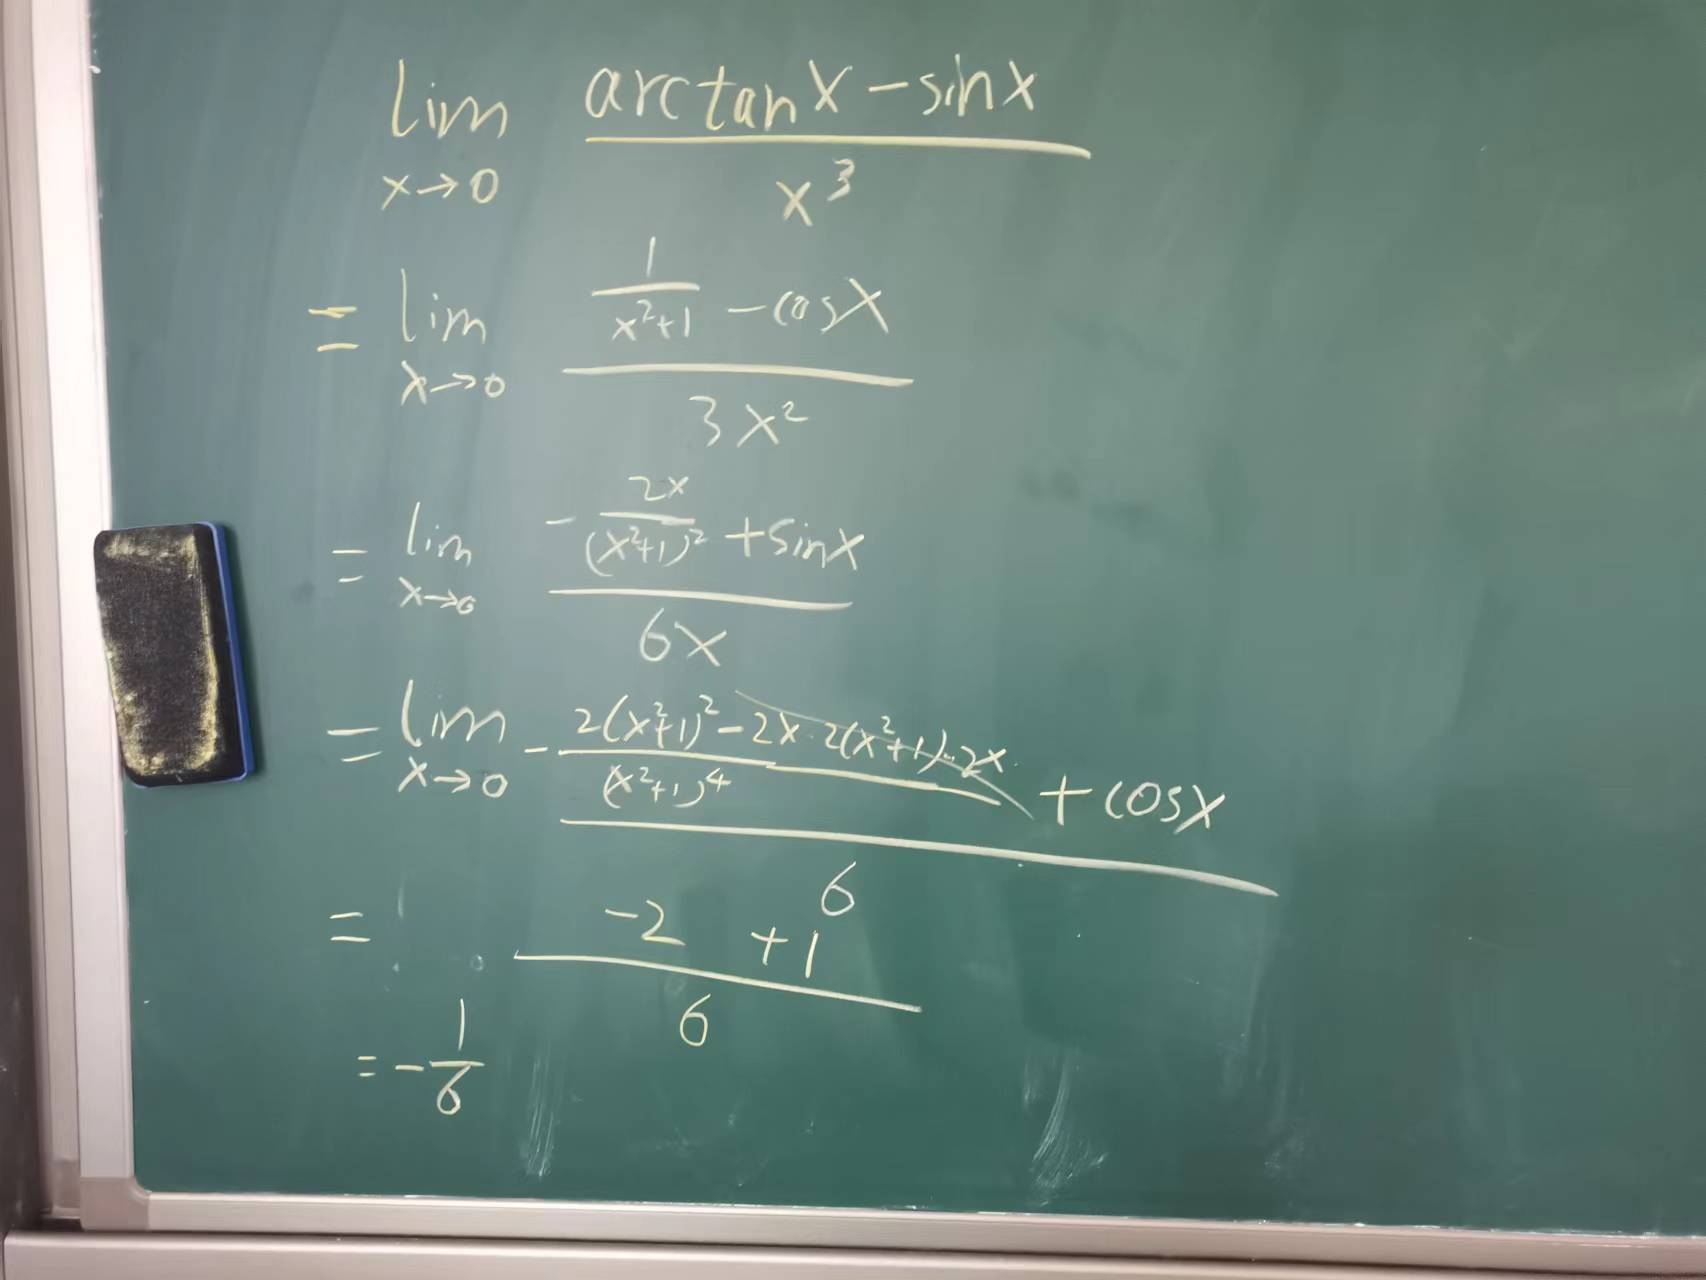 lim x→0 (arctanx - sinx) / x³
= lim x→0 (1/(x²+1) - cosx) / 3x²
= lim x→0 (-2x/(x²+1)² + sinx) / 6x
= lim x→0 (-(2(x²+1)² - 2x·2(x²+1)·2x)/(x²+1)⁴ + cosx) / 6
= (-2 + 1) / 6
= -1/6